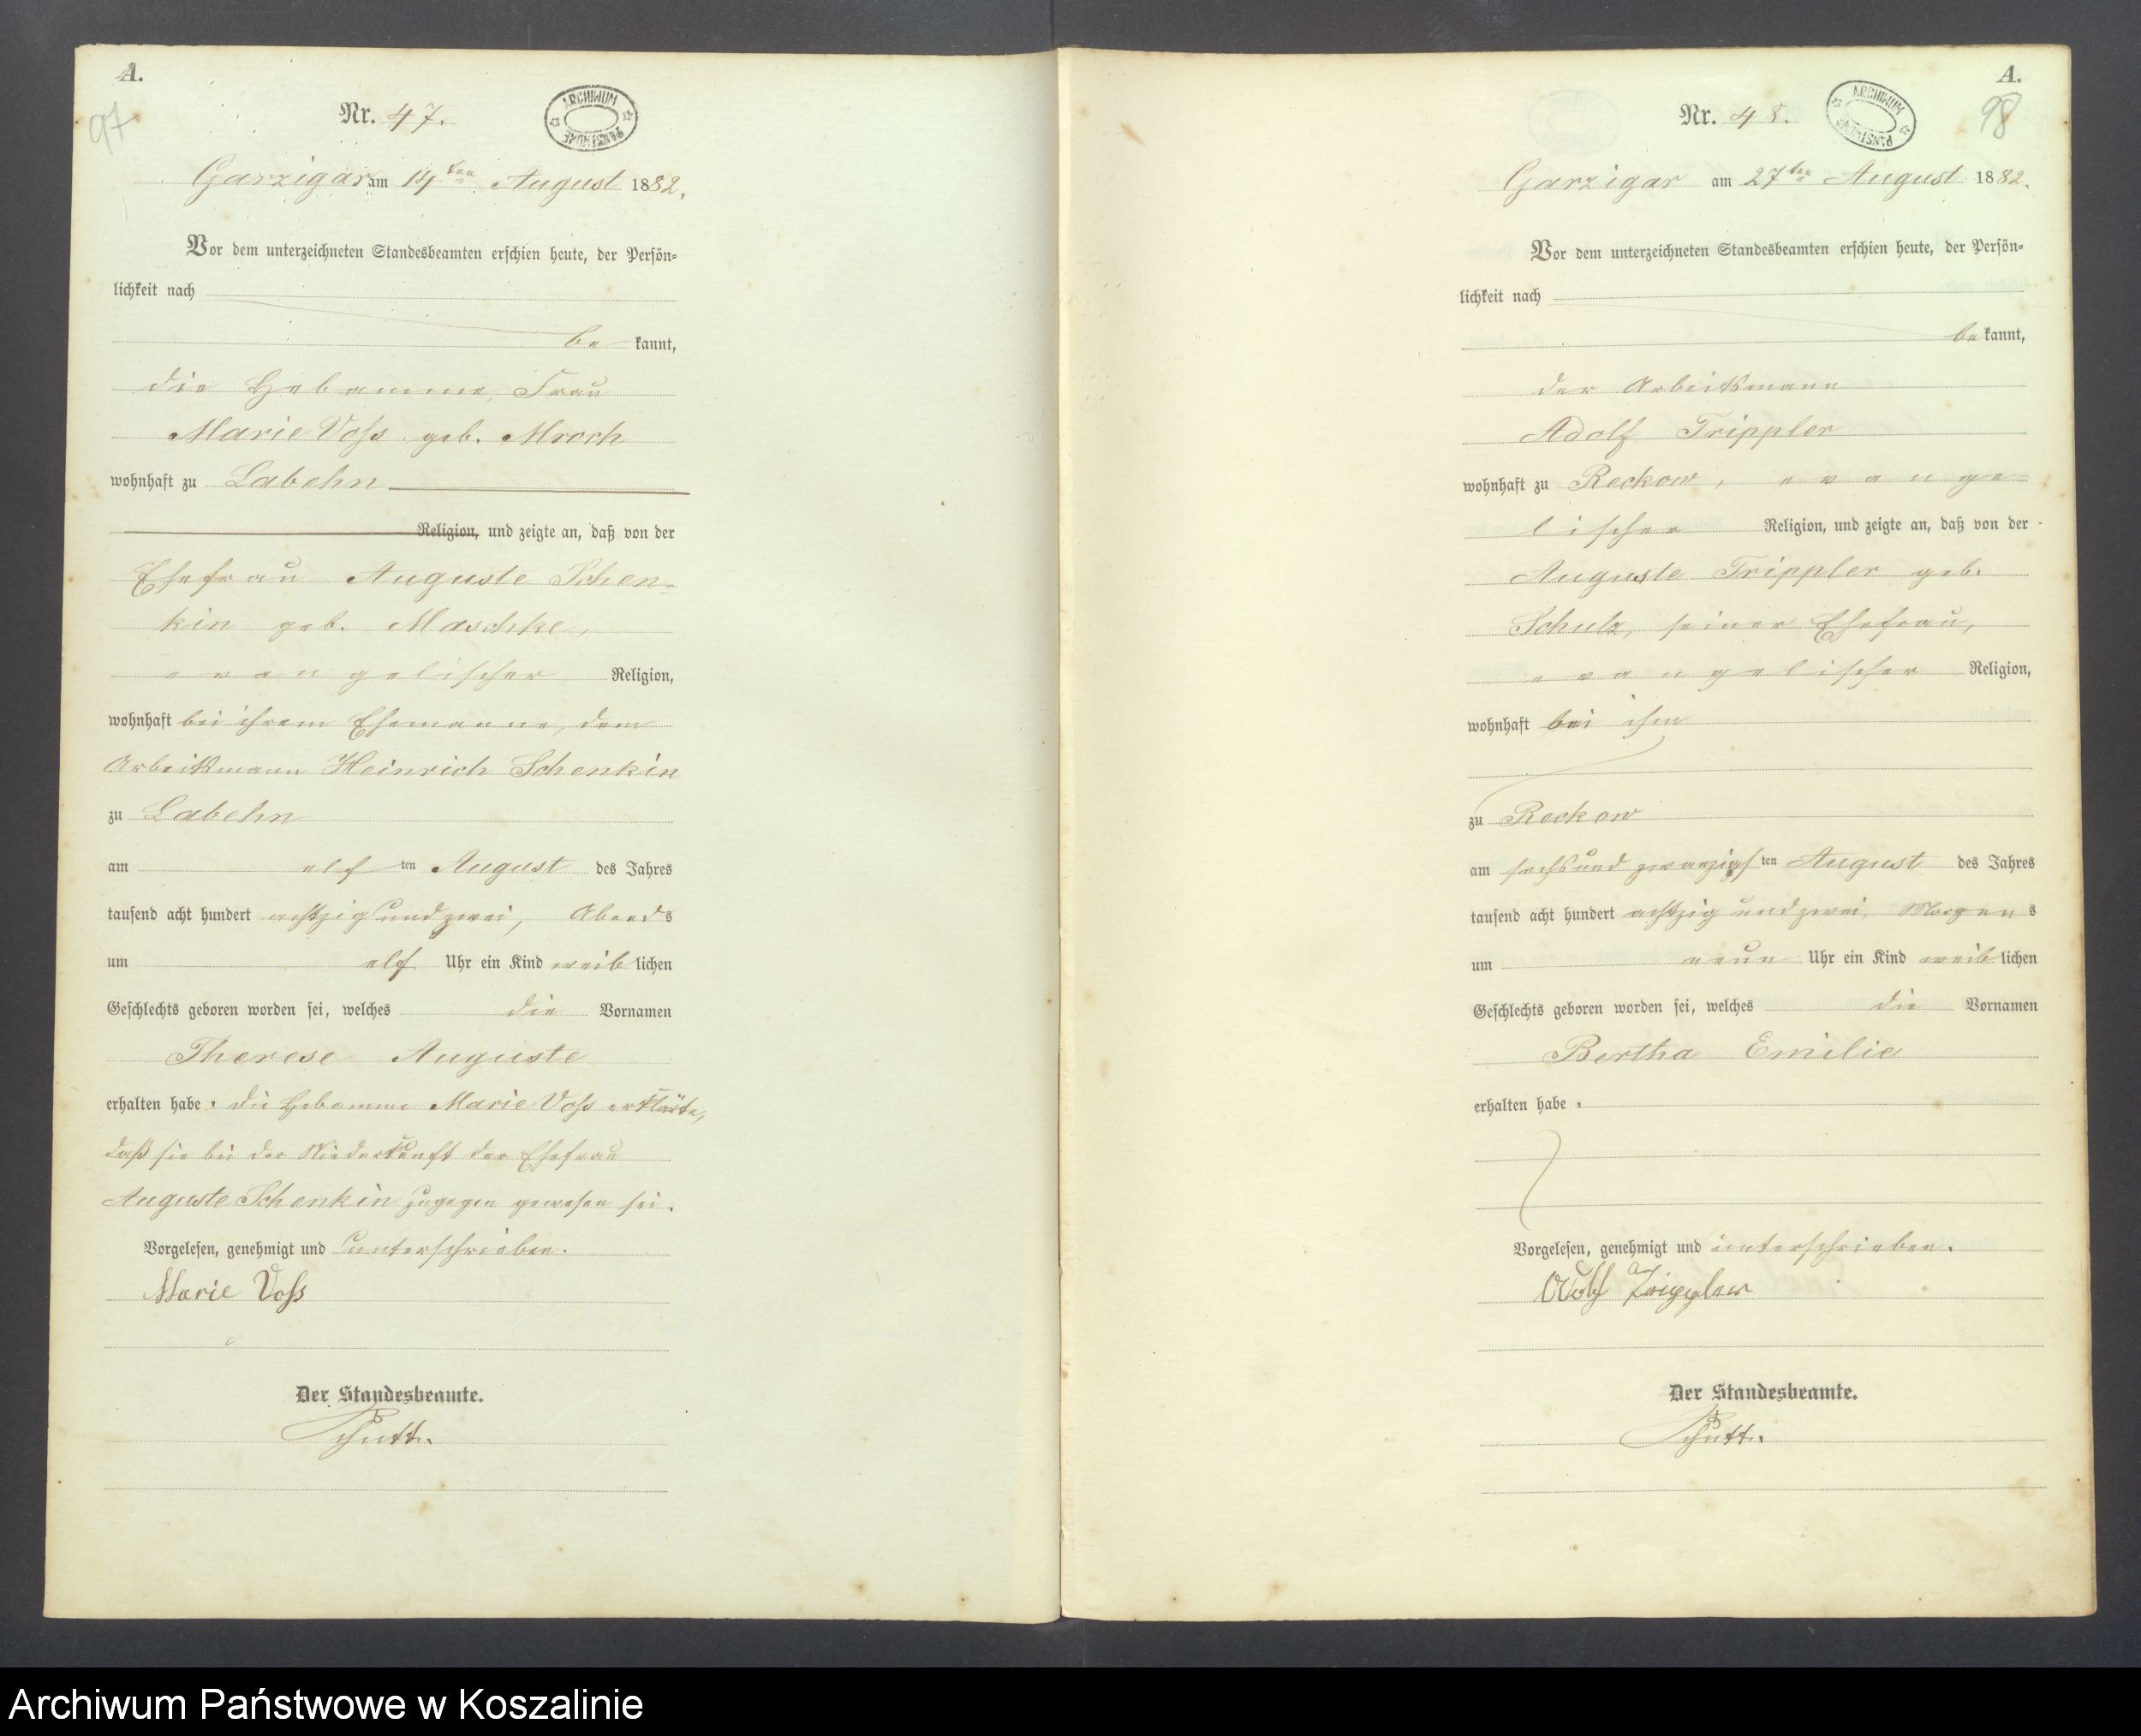 A.
97
Nr. 47.
ARCHIWUM PAŃSTWOWE
Garzigar am 14ten August 1882.
Vor dem unterzeichneten Standesbeamten erschien heute, der Persön-
lichkeit nach
be kannt,
die Hebamme, Frau
Marie Voß geb. Mroch
wohnhaft zu Labehn
Religion, und zeigte an, daß von der
Ehefrau Auguste Schen-
kin geb. Maschke,
evangelischer Religion,
wohnhaft bei ihrem Ehemanne, dem
Arbeitsmann Heinrich Schenkin
zu Labehn
am elf ten August des Jahres
tausend acht hundert achtzig und zwei, Abends
um elf Uhr ein Kind weiblichen
Geschlechts geboren worden sei, welches die Vornamen
Therese Auguste
erhalten habe. Die Hebamme Marie Voß erklärte,
daß sie bei der Niederkunft der Ehefrau
Auguste Schenkin zugegen gewesen sei.
Vorgelesen, genehmigt und unterschrieben.
Marie Voß
Der Standesbeamte.
Schutt.
A.
98
Nr. 48.
ARCHIWUM PAŃSTWOWE
Garzigar am 27ten August 1882.
Vor dem unterzeichneten Standesbeamten erschien heute, der Persön-
lichkeit nach
be kannt,
der Arbeitsmann
Adolf Trippler
wohnhaft zu Reckow, evange-
lischer Religion, und zeigte an, daß von der
Auguste Trippler geb.
Schulz, seiner Ehefrau,
evangelischer Religion,
wohnhaft bei ihm
zu Reckow
am sechsundzwanzigsten August des Jahres
tausend acht hundert achtzig und zwei, Morgens
um neun Uhr ein Kind weiblichen
Geschlechts geboren worden sei, welches die Vornamen
Bertha Emilie
erhalten habe.
Vorgelesen, genehmigt und unterschrieben.
Adolf Trippler
Der Standesbeamte.
Schutt.
Archiwum Państwowe w Koszalinie